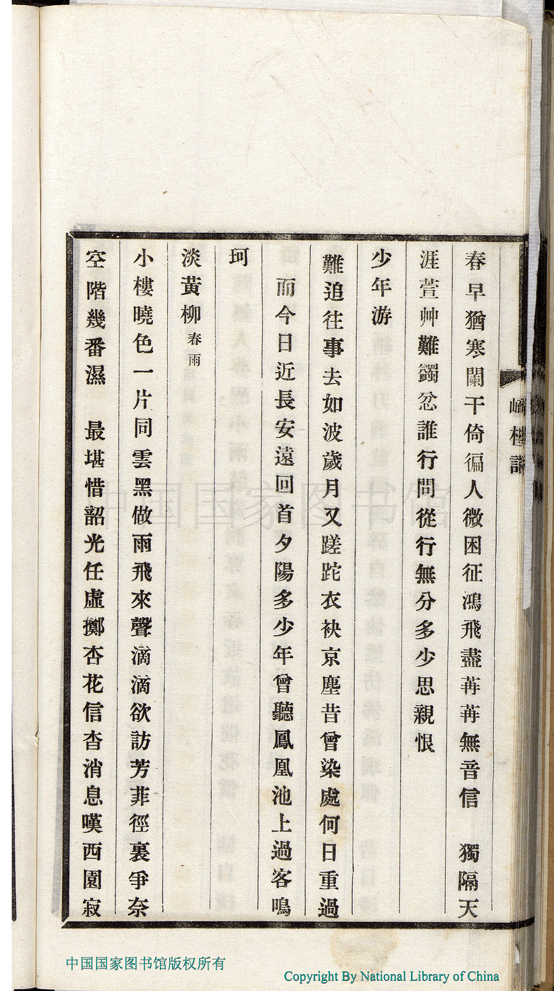 春早猶寒闌干倚徧人微困征鴻飛盡苒苒無音信　獨隔天
涯萱艸難蠲忿誰行問從行無分多少思親恨
少年游
難追往事去如波歲月又蹉跎衣袂京塵昔曾染處何日重過
而今日近長安遠回首夕陽多少年曾聽鳳凰池上過客鳴
珂
淡黃柳 春雨
小樓曉色一片同雲黑做雨飛來聲滴滴欲訪芳菲徑裏爭奈
空階幾番濕　最堪惜韶光任虛擲杏花信杳消息嘆西園寂
中国国家图书馆
中国国家图书馆版权所有
Copyright By National Library of China